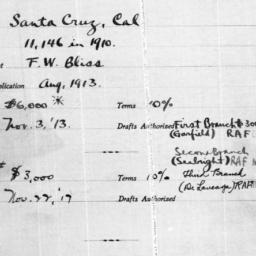 Santa Cruz, Cal
11,146 in 1910.
F. W. Bliss
plication Aug, 1913.
$6,000 * Terms 10%
Nov. 3, '13. Drafts Authorized First Branch $300
(Garfield) RAF
Second Branch
(Seabright) RAF
$3,000 Terms 10% Third Branch
Nov. 22, '17 Drafts Authorized (De Laveaga) RAF